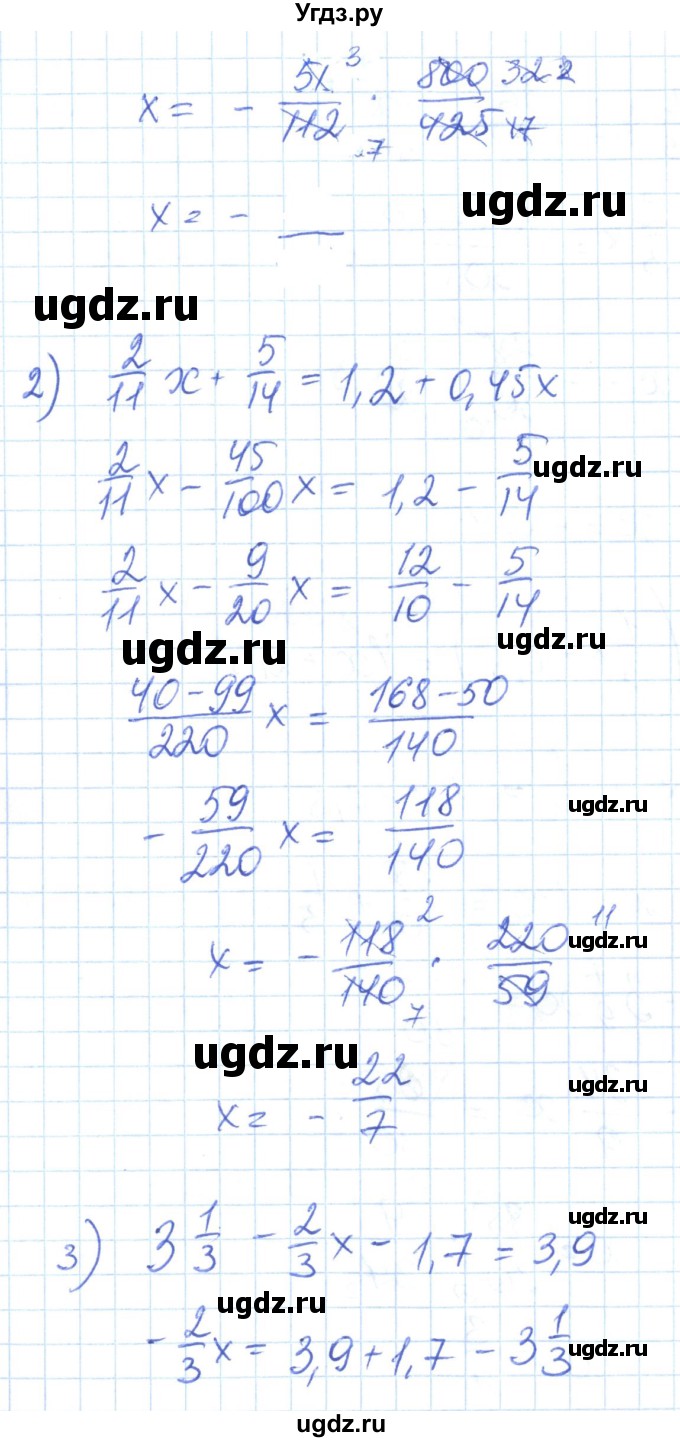 Угдз.ру
x = - 5x/112 3 7 · 800/425 32 2 17
ugdz.ru
x = -
ugdz.ru
2) 2/11 x + 5/14 = 1,2 + 0,45x
2/11 x - 45/100 x = 1,2 - 5/14
ugdz.ru
2/11 x - 9/20 x = 12/10 - 5/14
ugdz.ru
ugdz.ru
(40-99)/220 x = (168-50)/140
- 59/220 x = 118/140
ugdz.ru
x = - 118/140 2 7 · 220/59 11
ugdz.ru
ugdz.ru
x = - 22/7
ugdz.ru
3) 3 1/3 - 2/3 x - 1,7 = 3,9
ugdz.ru
ugdz.ru
- 2/3 x = 3,9 + 1,7 - 3 1/3
ugdz.ru
ugdz.ru